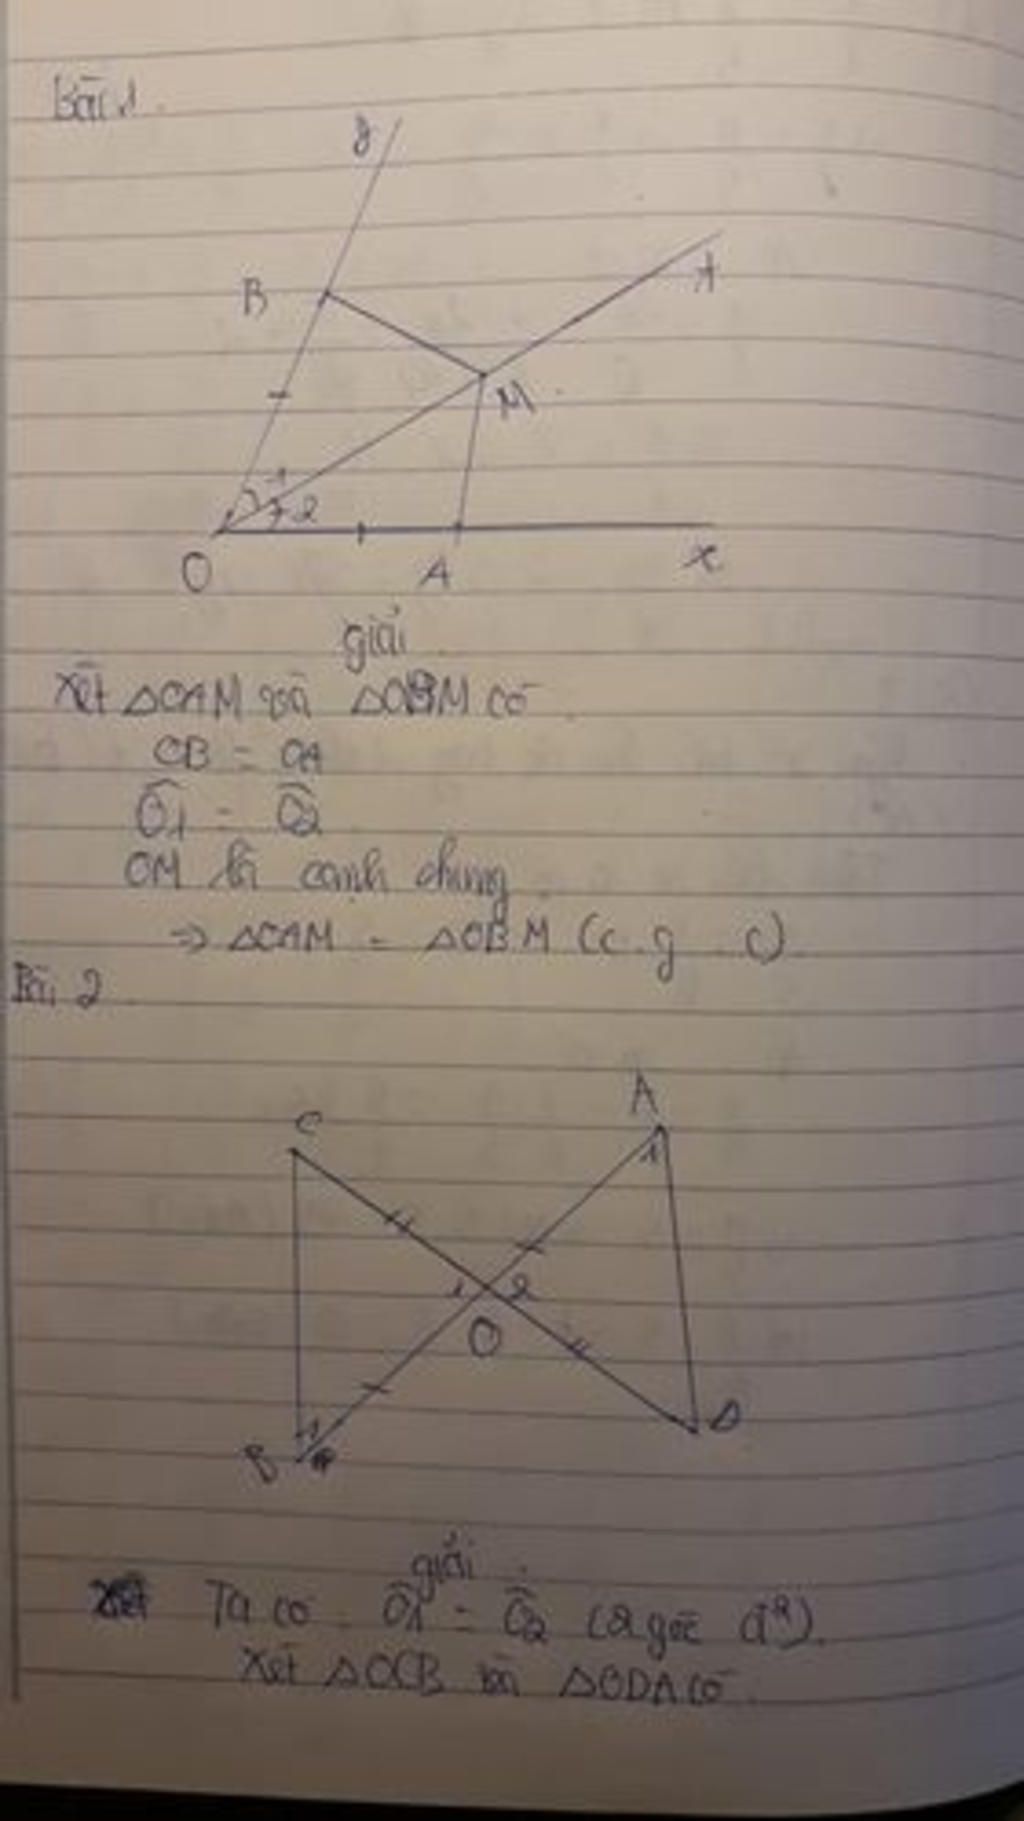 Bài 1.
y
B
t
M
1
2
O
A
x
giải
Xét ΔOAM và ΔOBM có
OB = OA
Ô1 = Ô2
OM là cạnh chung
=> ΔOAM = ΔOBM (c.g.c)
Bài 2
C
A
1
1
2
O
1
B
D
giải
Ta có Ô1 = Ô2 (2 góc đ²).
Xét ΔOCB và ΔODA có